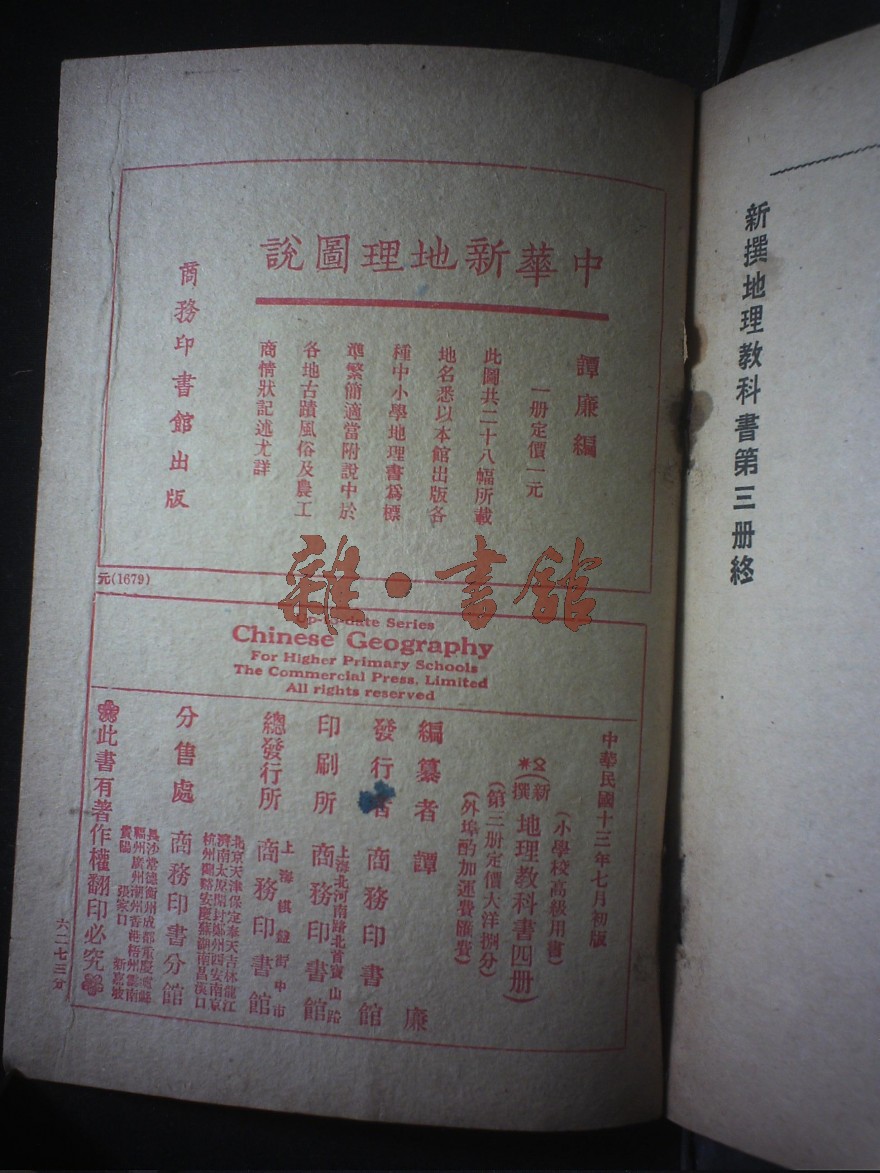 新撰地理教科書第三册終
中華新地理圖說
譚廉編
一册定價一元
此圖共二十八幅所載
地名悉以本館出版各
種中小學地理書爲標
準繁簡適當附說中於
各地古蹟風俗及農工
商情狀記述尤詳
商務印書館出版
元(1679)
雜·書館
Series
Chinese Geography
For Higher Primary Schools
The Commercial Press, Limited
All rights reserved
中華民國十三年七月初版
(小學校高級用書)
(新撰地理教科書四册)
(第三册定價大洋捌分)
(外埠酌加運費匯費)
編纂者 譚廉
發行者 商務印書館
上海北河南路北首寶山路
印刷所 商務印書館
上海棋盤街中市
總發行所 商務印書館
北京天津保定奉天吉林龍江
濟南太原開封鄭州西安南京
杭州蘭谿安慶蕪湖南昌漢口
分售處 商務印書分館
長沙常德衡州成都重慶
福州廣州潮州香港梧州雲南
貴陽 張家口 新嘉坡
此書有著作權翻印必究
六二七三分